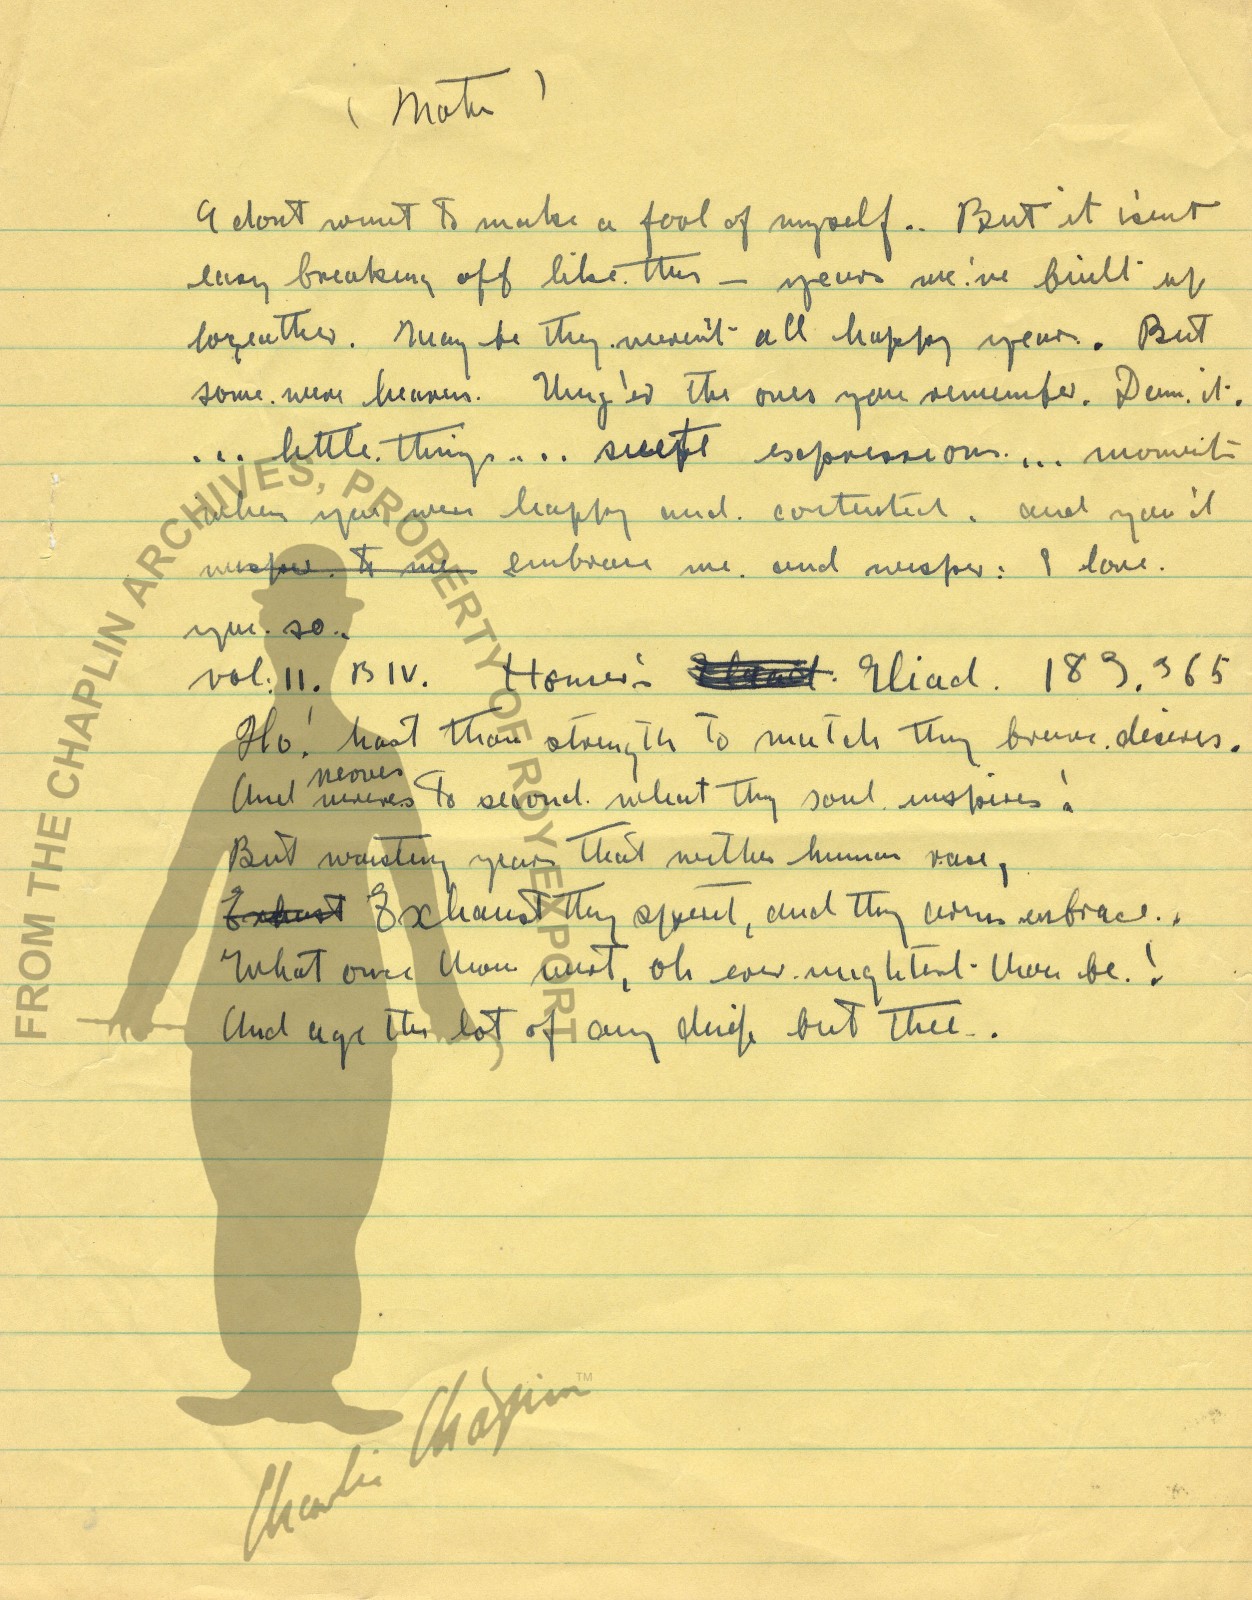 I dont want to make a fool of myself.. But it isent
easy breaking off like this — years we've built up
togeather. May be they weren't all happy years. But
some were heaven. They'er the ones you remember. Damn it.
... little things.... sweet expressions.... moments
when you were happy and contented. and you'd
wisper to me embrace me and wisper: I love
you so..
vol: II. B IV. Homer's Iliad. 189.365
Ho! hast thou strength to match thy brave desires.
nerves
And nerves to second what thy soul inspires!
But wasting years that wither human race,
Exhaust Exhaust thy spirit, and thy arms enbrace..
What once thou wert, oh ever mightest thou be.!
And age the lot of any chief but thee..
FROM THE CHAPLIN ARCHIVES, PROPERTY OF ROY EXPORT
Charlie Chaplin™